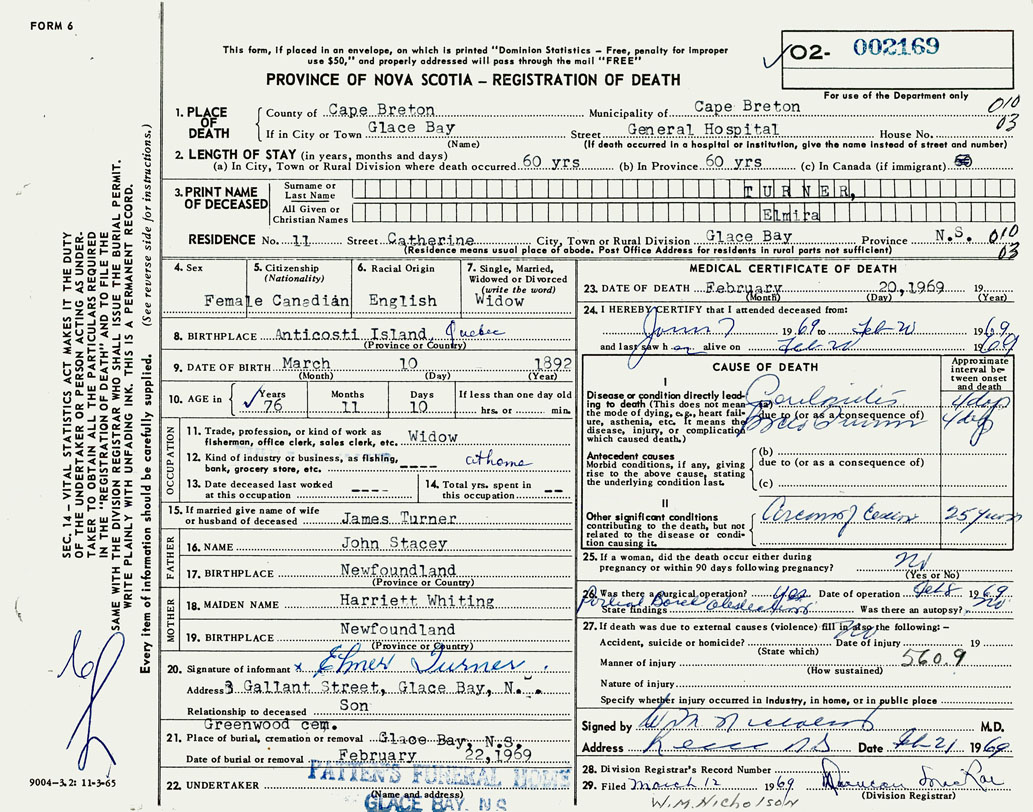 FORM 6
This form, if placed in an envelope, on which is printed "Dominion Statistics – Free, penalty for improper
use $50," and properly addressed will pass through the mail "FREE"
PROVINCE OF NOVA SCOTIA – REGISTRATION OF DEATH
02- 002169
For use of the Department only
010
03
1. PLACE OF DEATH
County of Cape Breton Municipality of Cape Breton
If in City or Town Glace Bay Street General Hospital House No.
(Name) (If death occurred in a hospital or institution, give the name instead of street and number)
2. LENGTH OF STAY (in years, months and days)
(a) In City, Town or Rural Division where death occurred 60 yrs (b) In Province 60 yrs (c) In Canada (if immigrant)
3. PRINT NAME OF DECEASED
Surname or Last Name TURNER,
All Given or Christian Names Elmira
RESIDENCE No. 11 Street Catherine City, Town or Rural Division Glace Bay Province N.S. 010
(Residence means usual place of abode. Post Office Address for residents in rural parts not sufficient) 03
4. Sex Female
5. Citizenship (Nationality) Canadian
6. Racial Origin English
7. Single, Married, Widowed or Divorced (write the word) Widow
8. BIRTHPLACE Anticosti Island, Quebec
(Province or Country)
9. DATE OF BIRTH March 10 1892
(Month) (Day) (Year)
10. AGE in Years 76 Months 11 Days 10 If less than one day old hrs. or min.
OCCUPATION
11. Trade, profession, or kind of work as fisherman, office clerk, sales clerk, etc. Widow
12. Kind of industry or business, as fishing, bank, grocery store, etc. ---- at home
13. Date deceased last worked at this occupation ----
14. Total yrs. spent in this occupation --
15. If married give name of wife or husband of deceased James Turner
FATHER
16. NAME John Stacey
17. BIRTHPLACE Newfoundland
(Province or Country)
MOTHER
18. MAIDEN NAME Harriett Whiting
19. BIRTHPLACE Newfoundland
(Province or Country)
20. Signature of informant x Elmer Turner
Address 3 Gallant Street, Glace Bay, N.
Relationship to deceased Son
Greenwood cem.
21. Place of burial, cremation or removal Glace Bay, N.S.
Date of burial or removal February 22,1969
22. UNDERTAKER PATTEN'S FUNERAL HOME
(Name and address)
GLACE BAY, N.S.
MEDICAL CERTIFICATE OF DEATH
23. DATE OF DEATH February 20,1969 19
(Month) (Day) (Year)
24. I HEREBY CERTIFY that I attended deceased from:
1969 to Feb 20 1969
and last saw h er alive on Feb 20 1969
CAUSE OF DEATH
Approximate interval between onset and death
I
Disease or condition directly leading to death (This does not mean the mode of dying, e.g., heart failure, asthenia, etc. It means the disease, injury, or complication which caused death.)
due to (or as a consequence of)
4 days
4 days
Antecedent causes
Morbid conditions, if any, giving rise to the above cause, stating the underlying condition last.
(b)
due to (or as a consequence of)
(c)
II
Other significant conditions contributing to the death, but not related to the disease or condition causing it.
25 years
25. If a woman, did the death occur either during pregnancy or within 90 days following pregnancy? No
(Yes or No)
26. Was there a surgical operation? Yes Date of operation Feb 8 1969
State findings Partial Bowel Obstruction Was there an autopsy? No
27. If death was due to external causes (violence) fill in also the following: – No
Accident, suicide or homicide? Date of injury 19
(State which)
Manner of injury 560.9
(How sustained)
Nature of injury
Specify whether injury occurred in industry, in home, or in public place
Signed by W M Nicholson M.D.
Address N S Date Feb 21 1969
28. Division Registrar's Record Number
29. Filed March 12 1969
(Division Registrar)
W.M. Nicholson
SEC. 14 – VITAL STATISTICS ACT MAKES IT THE DUTY
OF THE UNDERTAKER OR PERSON ACTING AS UNDER-
TAKER TO OBTAIN ALL THE PARTICULARS REQUIRED
IN THE "REGISTRATION OF DEATH" AND TO FILE THE
SAME WITH THE DIVISION REGISTRAR WHO SHALL ISSUE THE BURIAL PERMIT.
WRITE PLAINLY WITH UNFADING INK. THIS IS A PERMANENT RECORD.
Every item of information should be carefully supplied. (See reverse side for instructions.)
9004-3.2: 11-3-65